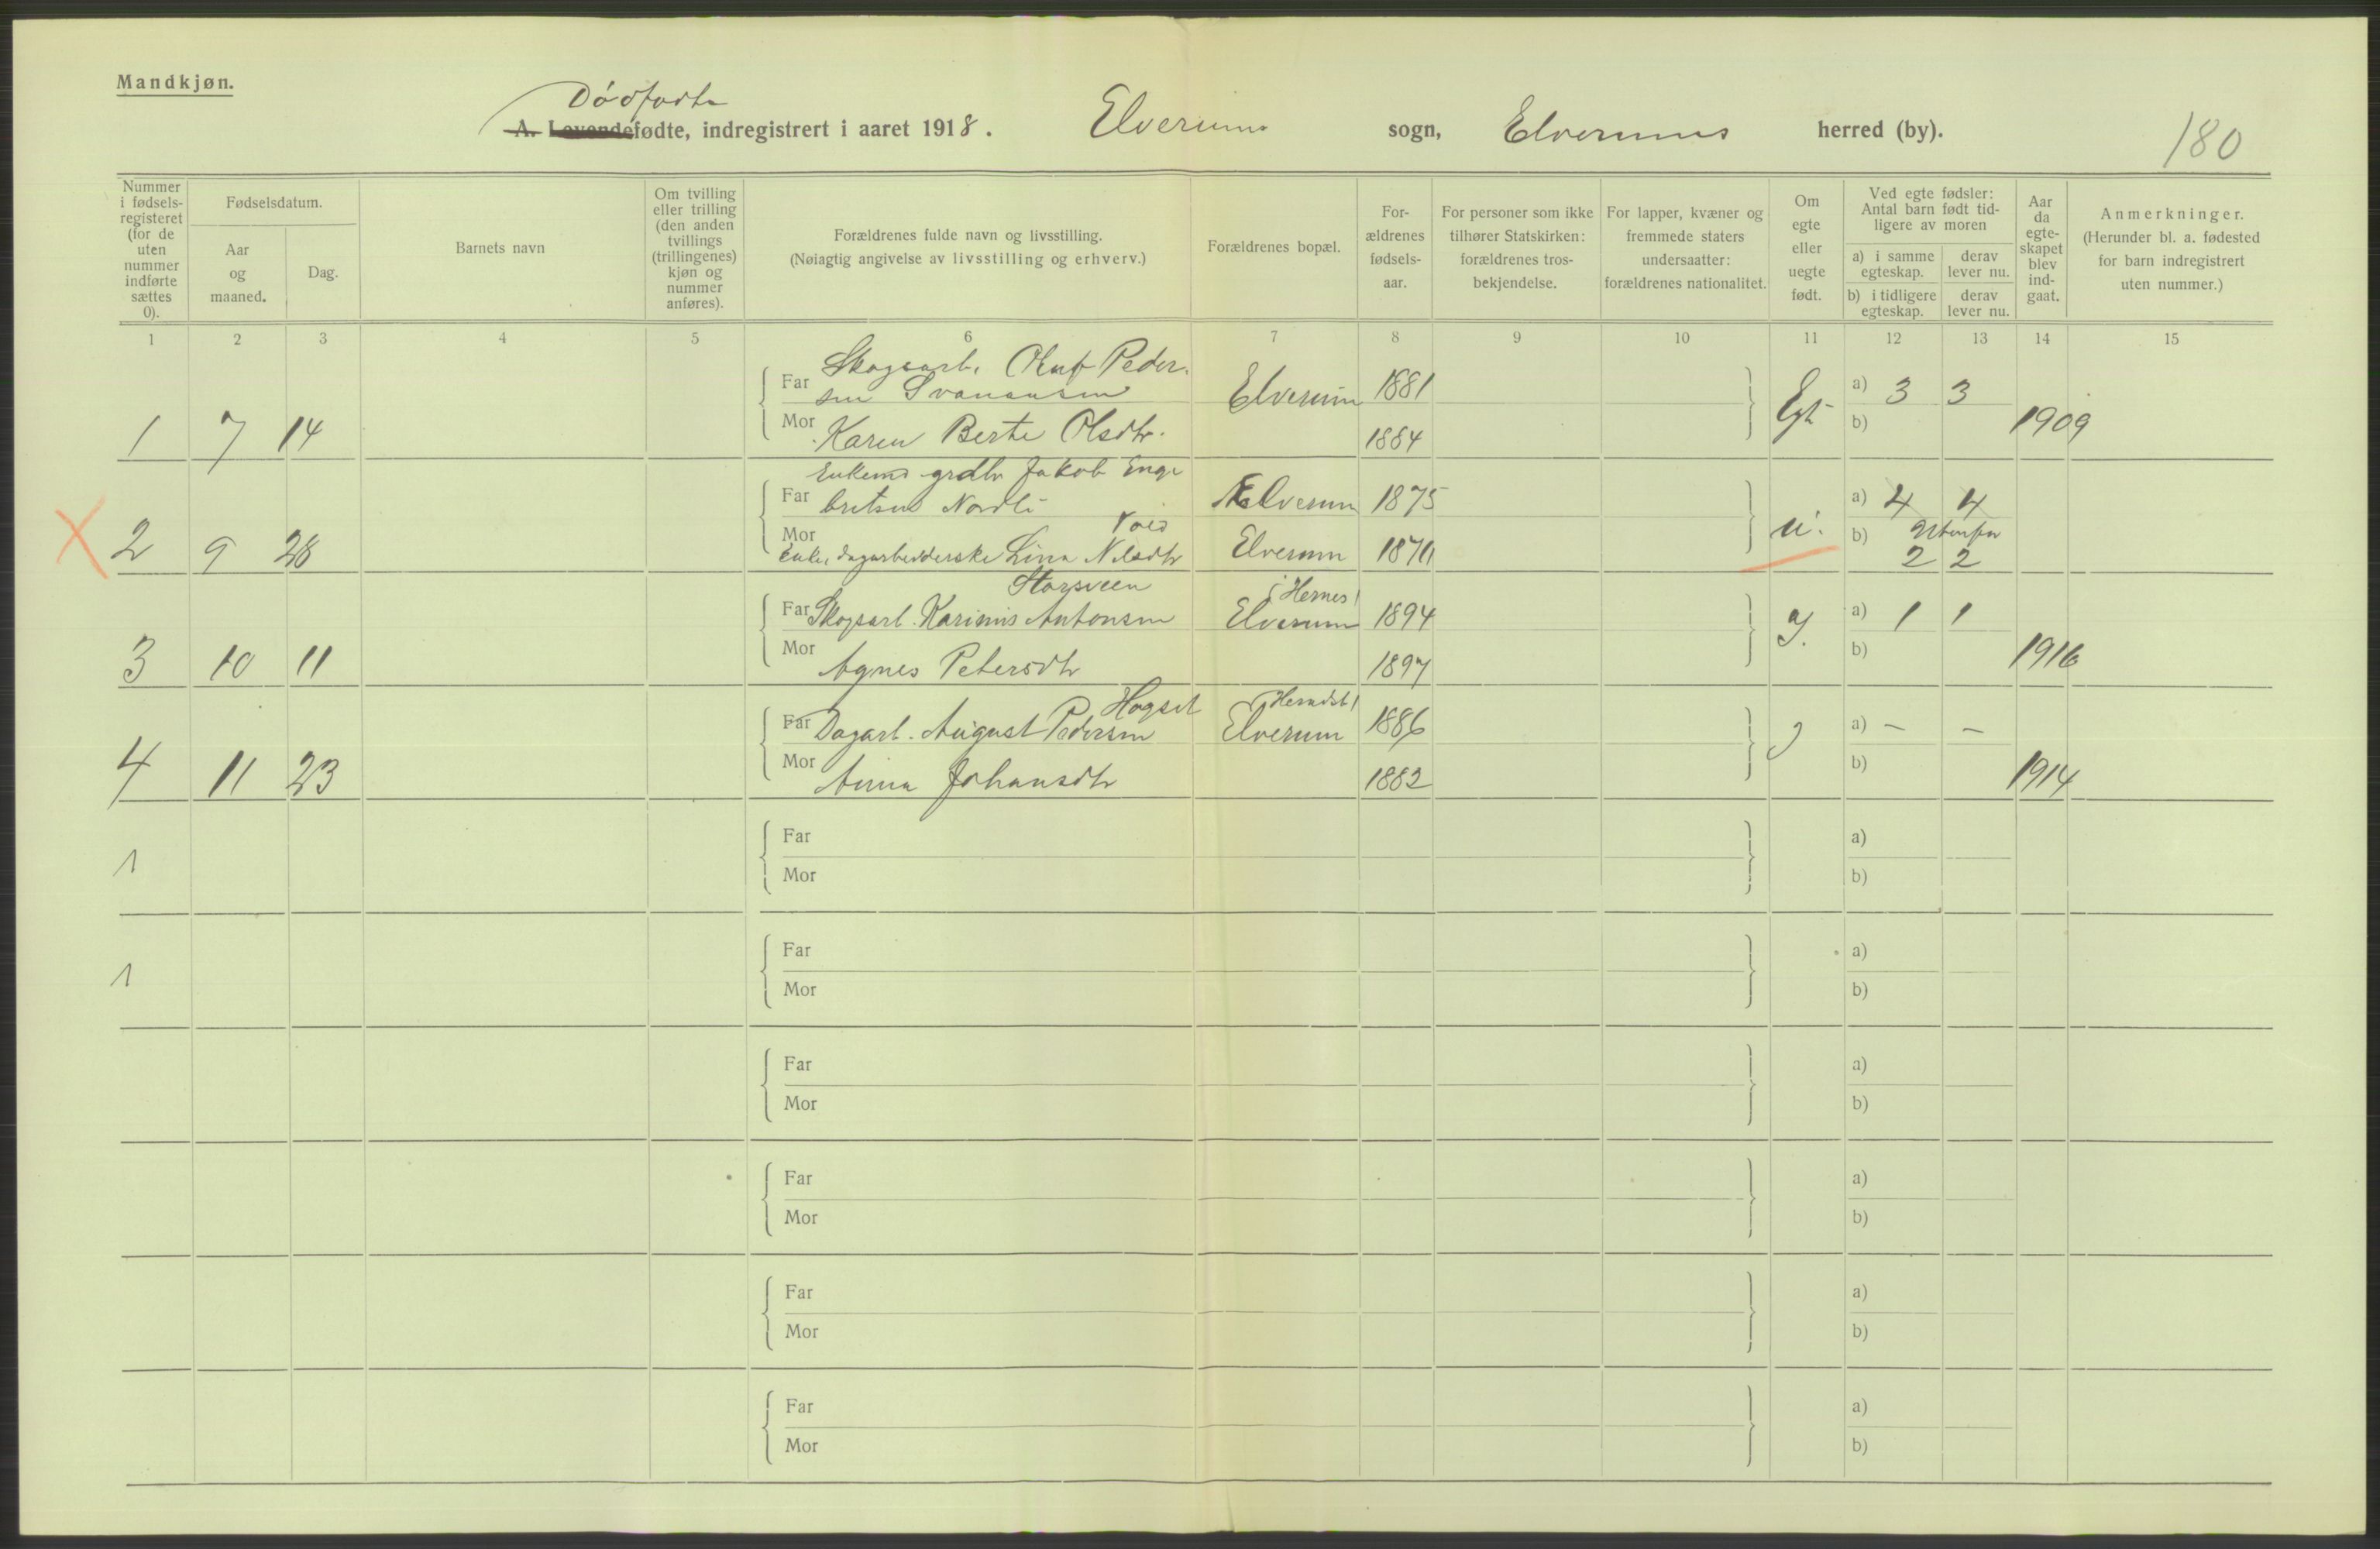 Mandkjøn.
Dödfödte
A. Levendefødte, indregistrert i aaret 1918. Elverums sogn, Elverums herred (by).
180
Nummer i fødsels-registeret (for de uten nummer indførte sættes 0).
Fødselsdatum.
Aar og maaned.
Dag.
Barnets navn
Om tvilling eller trilling (den anden tvillings (trillingenes) kjøn og nummer anføres).
Forældrenes fulde navn og livsstilling.
(Nøiagtig angivelse av livsstilling og erhverv.)
Forældrenes bopæl.
For-ældrenes fødsels-aar.
For personer som ikke tilhører Statskirken: forældrenes tros-bekjendelse.
For lapper, kvæner og fremmede staters undersaatter: forældrenes nationalitet.
Om egte eller uegte født.
Ved egte fødsler: Antal barn født tid-ligere av moren
a) i samme egteskap.
derav lever nu.
b) i tidligere egteskap.
derav lever nu.
Aar da egte-skapet blev ind-gaat.
Anmerkninger.
(Herunder bl. a. fødested for barn indregistrert uten nummer.)
1 2 3 4 5 6 7 8 9 10 11 12 13 14 15
Skogsarb. Oluf Peder-
Far sen Elverum 1881 a) 3 3
1 7 14 Mor Karen Berte Olsdtr. 1884 Egt b) 1909
Enkemd grdbr Jakob Enge
Far bretsen Nordli Elverum 1875 a) 4 4
2 9 28 Mor Enke, dagarbeiderske Lina Nilsdtr Elverum u. b) 2 2
Storsveen (Hernes)
Far Skogsarb. Karinius Antonsen Elverum 1894 a) 1 1
3 10 11 Mor Agnes Petersdtr 1897 b) 1916
Hagset
Far Dagarb. August Pedersen Elverum 1886 a) – –
4 11 23 Mor Anna Johansdtr 1882 b) 1914
Far a)
1 Mor b)
Far a)
1 Mor b)
Far a)
Mor b)
Far a)
Mor b)
Far a)
Mor b)
Far a)
Mor b)